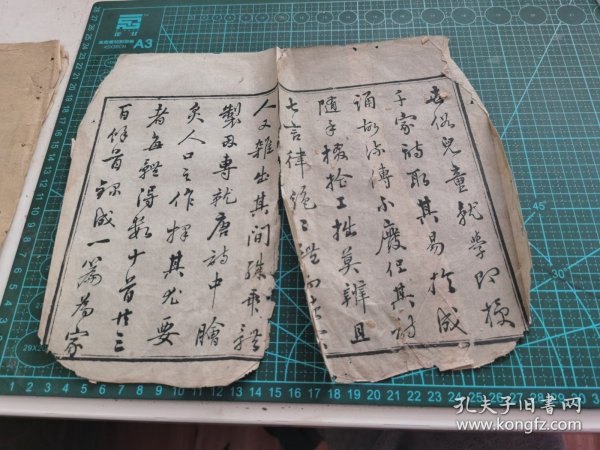 世俗兒童就學即授
千家詩取其易於成
誦故流傳不廢但其詩
隨手掇拾工拙莫辨且
七言律絕二體而
人又雜出其間殊乖體
製因專就唐詩中膾
炙人口之作擇其尤要
者每體得數十首共三
百餘首錄成一編為家
A3
孔夫子旧书网
www.kongfz.com